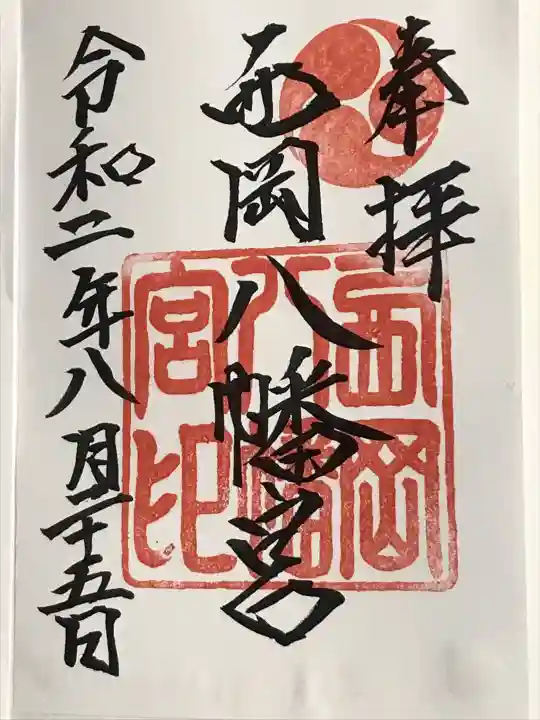 奉拝
西岡八幡宮
令和二年八月二十五日
西岡八幡宮印